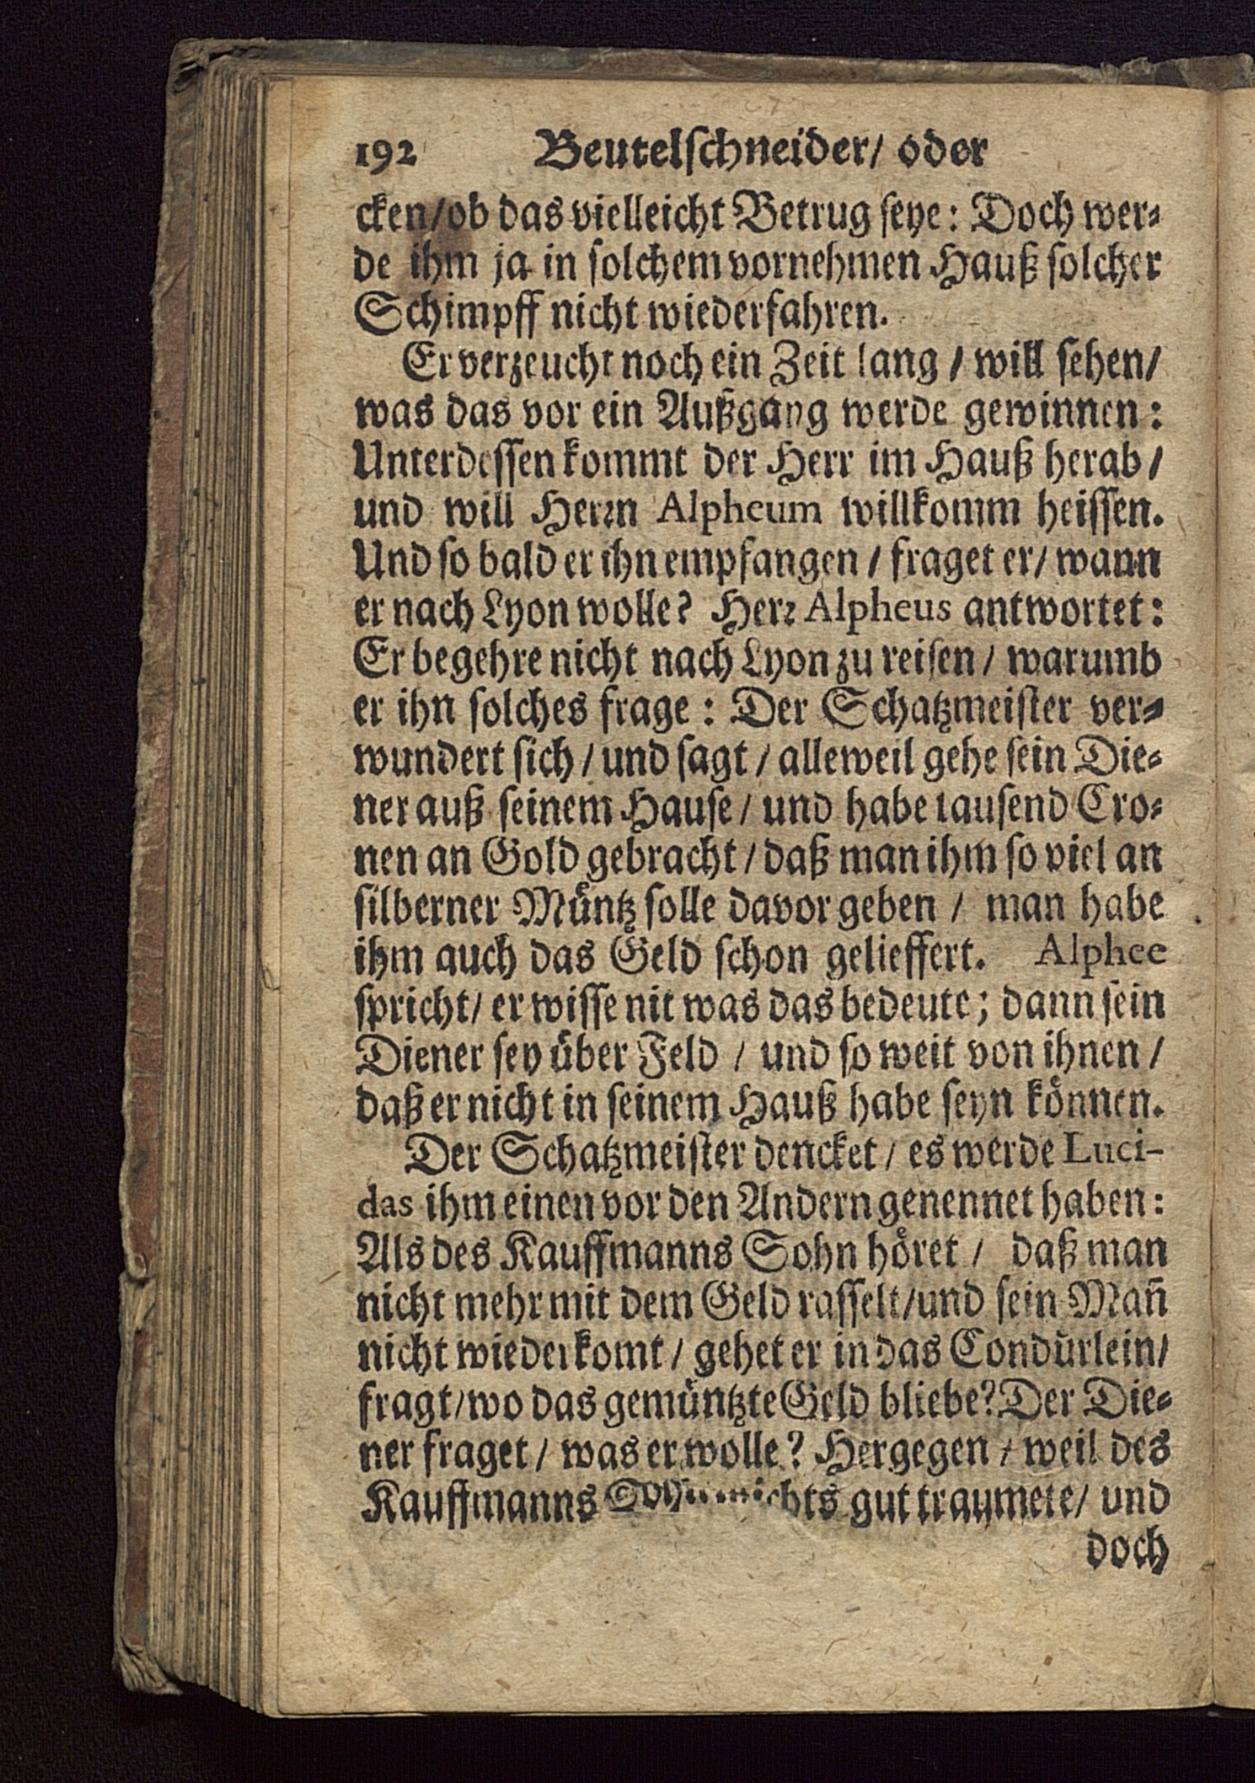 192 Beutelschneider/ oder
cken/ob das vielleicht Betrug seye: Doch wer-
de ihm ja in solchem vornehmen Hauß solcher
Schimpff nicht wiederfahren.
Er verzeucht noch ein Zeit lang / will sehen/
was das vor ein Außgang werde gewinnen:
Unterdessen kommt der Herr im Hauß herab /
und will Herrn Alpheum willkomm heissen.
Und so bald er ihn empfangen / fraget er/ wann
er nach Lyon wolle? Herr Alpheus antwortet:
Er begehre nicht nach Lyon zu reisen / warumb
er ihn solches frage: Der Schatzmeister ver-
wundert sich / und sagt / alleweil gehe sein Die-
ner auß seinem Hause / und habe tausend Cro-
nen an Gold gebracht / daß man ihm so viel an
silberner Müntz solle davor geben / man habe
ihm auch das Geld schon gelieffert. Alphee
spricht/ er wisse nit was das bedeute; dann sein
Diener sey über Feld / und so weit von ihnen /
daß er nicht in seinem Hauß habe seyn können.
Der Schatzmeister dencket / es werde Luci-
das ihm einen vor den Andern genennet haben:
Als des Kauffmanns Sohn höret / daß man
nicht mehr mit dem Geld rasselt/und sein Mañ
nicht wiederkomt / gehet er in das Condürlein/
fragt/wo das gemüntzte Geld bliebe? Der Die-
ner fraget / was er wolle? Hergegen / weil des
Kauffmanns gut traumete/ und
doch